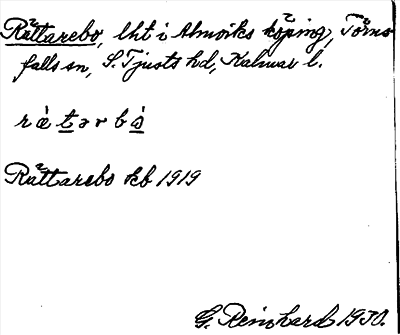 Råttarebo, lht i Almviks köping, Törns
falls sn, S. Tjusts hd, Kalmar l.
r à t ə r b ò
Råttarebo kb 1919
G. Reinhard 1930.